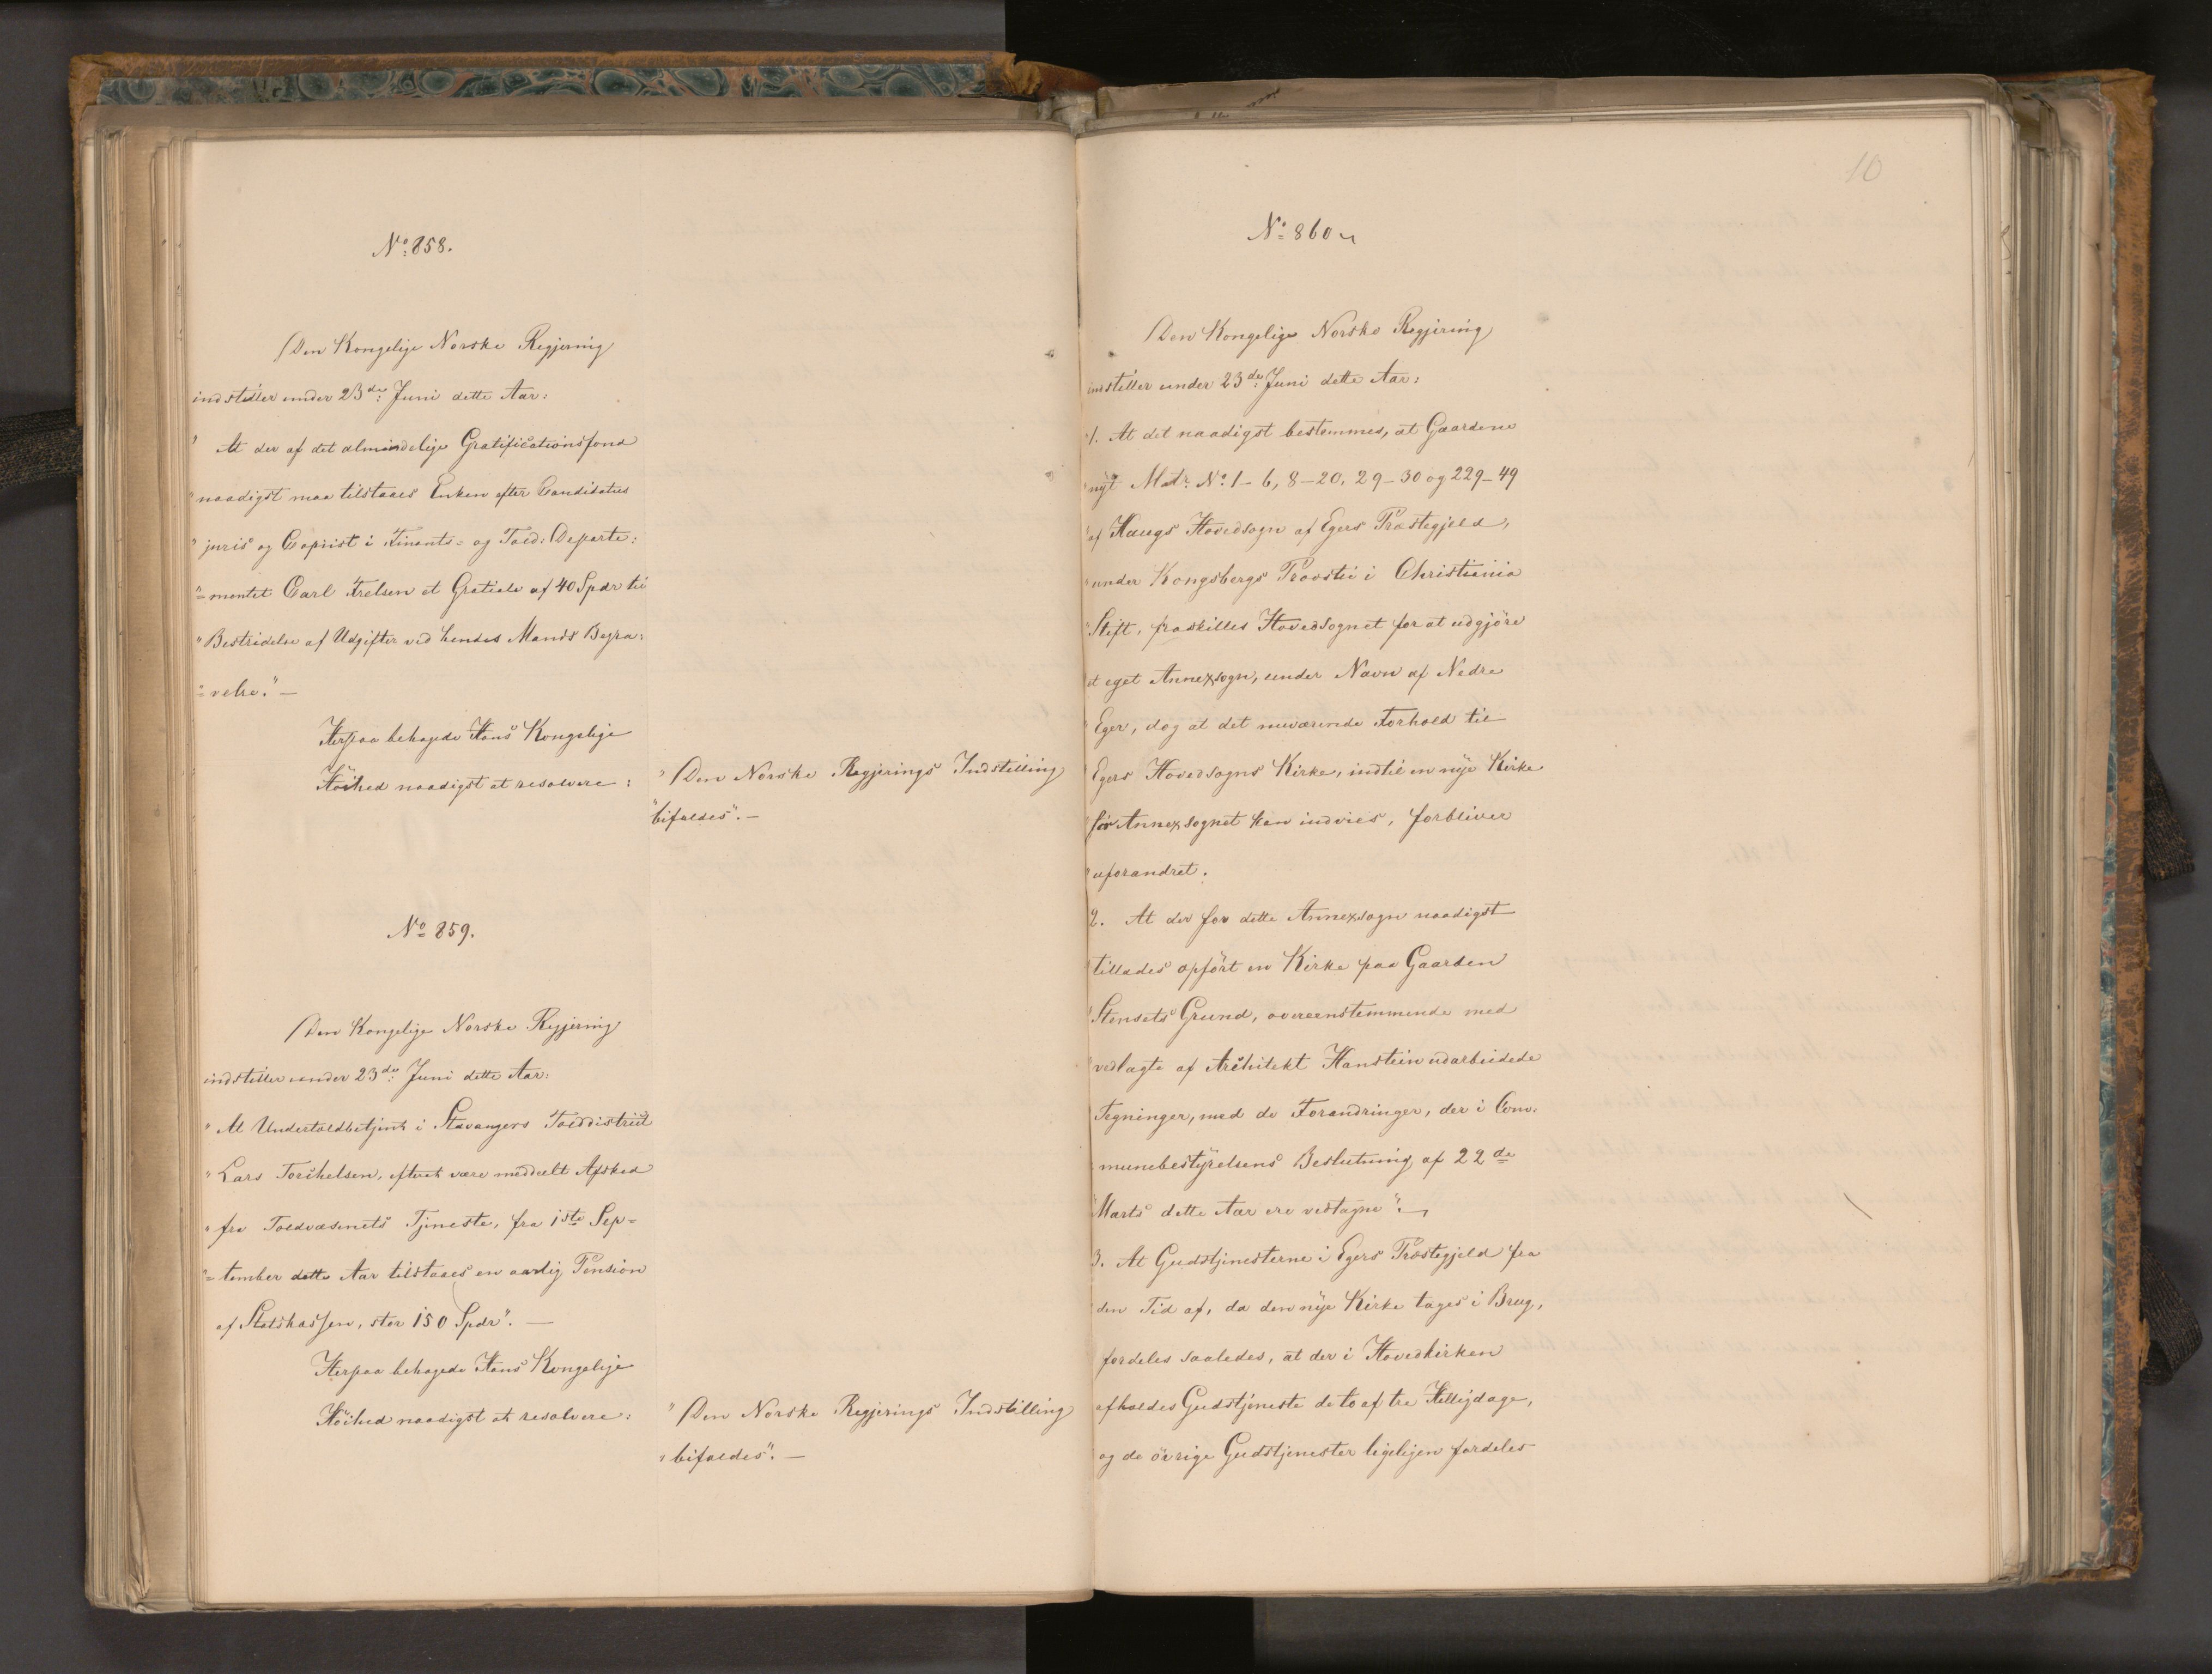 No: 858.
Den Kongelige Norske Regjering
indstiller under 23de: Juni dette Aar:
" At der af det almindelige Gratificationsfond
" naadigst maa tilstaaes Enken efter Candidatus
" juris og Copiist i Finants- og Told: Departe:
"= mentet Carl Frelsen et Gratiale af 40 Spdr til
" Bestridelse af Udgifter ved hendes Mands Begra:
"= velse." —
Herpaa behagede Hans Kongelige
Höihed naadigst at resolvere:
" Den Norske Regjerings Indstilling
" bifaldes". —
No= 859.
Den Kongelige Norske Regjering
indstiller under 23de: Juni dette Aar:
" At Undertoldbetjent i Stavangers Tolddistrict
" Lars Torkelsen, efter at være meddeelt Afsked
" fra Toldvæsenets Tjeneste, fra 1ste Sep=
"= tember dette Aar tilstaaes en aarlig Pension
af Statskassen, stor 150 Spdr". —
Herpaa behagede Hans Kongelige
Höihed naadigst at resolvere:
" Den Norske Regjerings Indstilling
" bifaldes". —
10
No= 860
Den Kongelige Norske Regjering
indstiller under 23de: Juni dette Aar:
" 1. At det naadigst bestemmes, at Gaardene
" nyt Matr: No: 1-6, 8-20, 29-30 og 229-49
" af Haugs Hovedsogn af Egers Præstegjeld,
" under Kongsbergs Provsti i Christiania
" Stift, fraskilles Hovedsognet for at udgjöre
et eget Annexsogn, under Navn af Nedre
" Eger, dog at det nuværende Forhold til
Egers Hovedsogns Kirke, indtil en nye Kirke
" for Annexsognet kan indvies, forbliver
" uforandret.
2. At der for dette Annexsogn naadigst
tillades opfört en Kirke paa Gaarden
" Stensets Grund, overeenstemmende med
" vedlagte af Architekt Hanstein udarbeidede
Tegninger, med de Forandringer, der i Com:
munebestyrelsens Beslutning af 22de
" Marts dette Aar ere vedtagne".
3. At Gudstjenesterne i Egers Præstegjeld fra
den Tid af, da den nye Kirke tages i Brug,
fordeles saaledes, at der i Hovedkirken
afholdes Gudstjeneste de to af tre Helligdage,
og de övrige Gudstjenester ligeligen fordeles